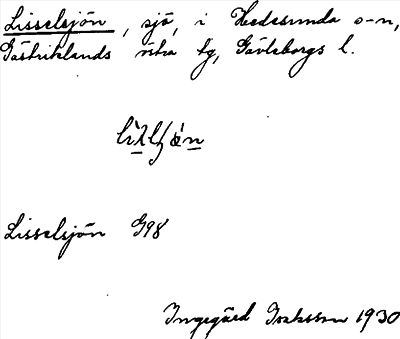 Lisselsjön, sjö, i Hedesunda s-n,
Gästriklands östra tg, Gävleborgs l.
Lisselsjön G98
Ingegärd Isaksson 1930